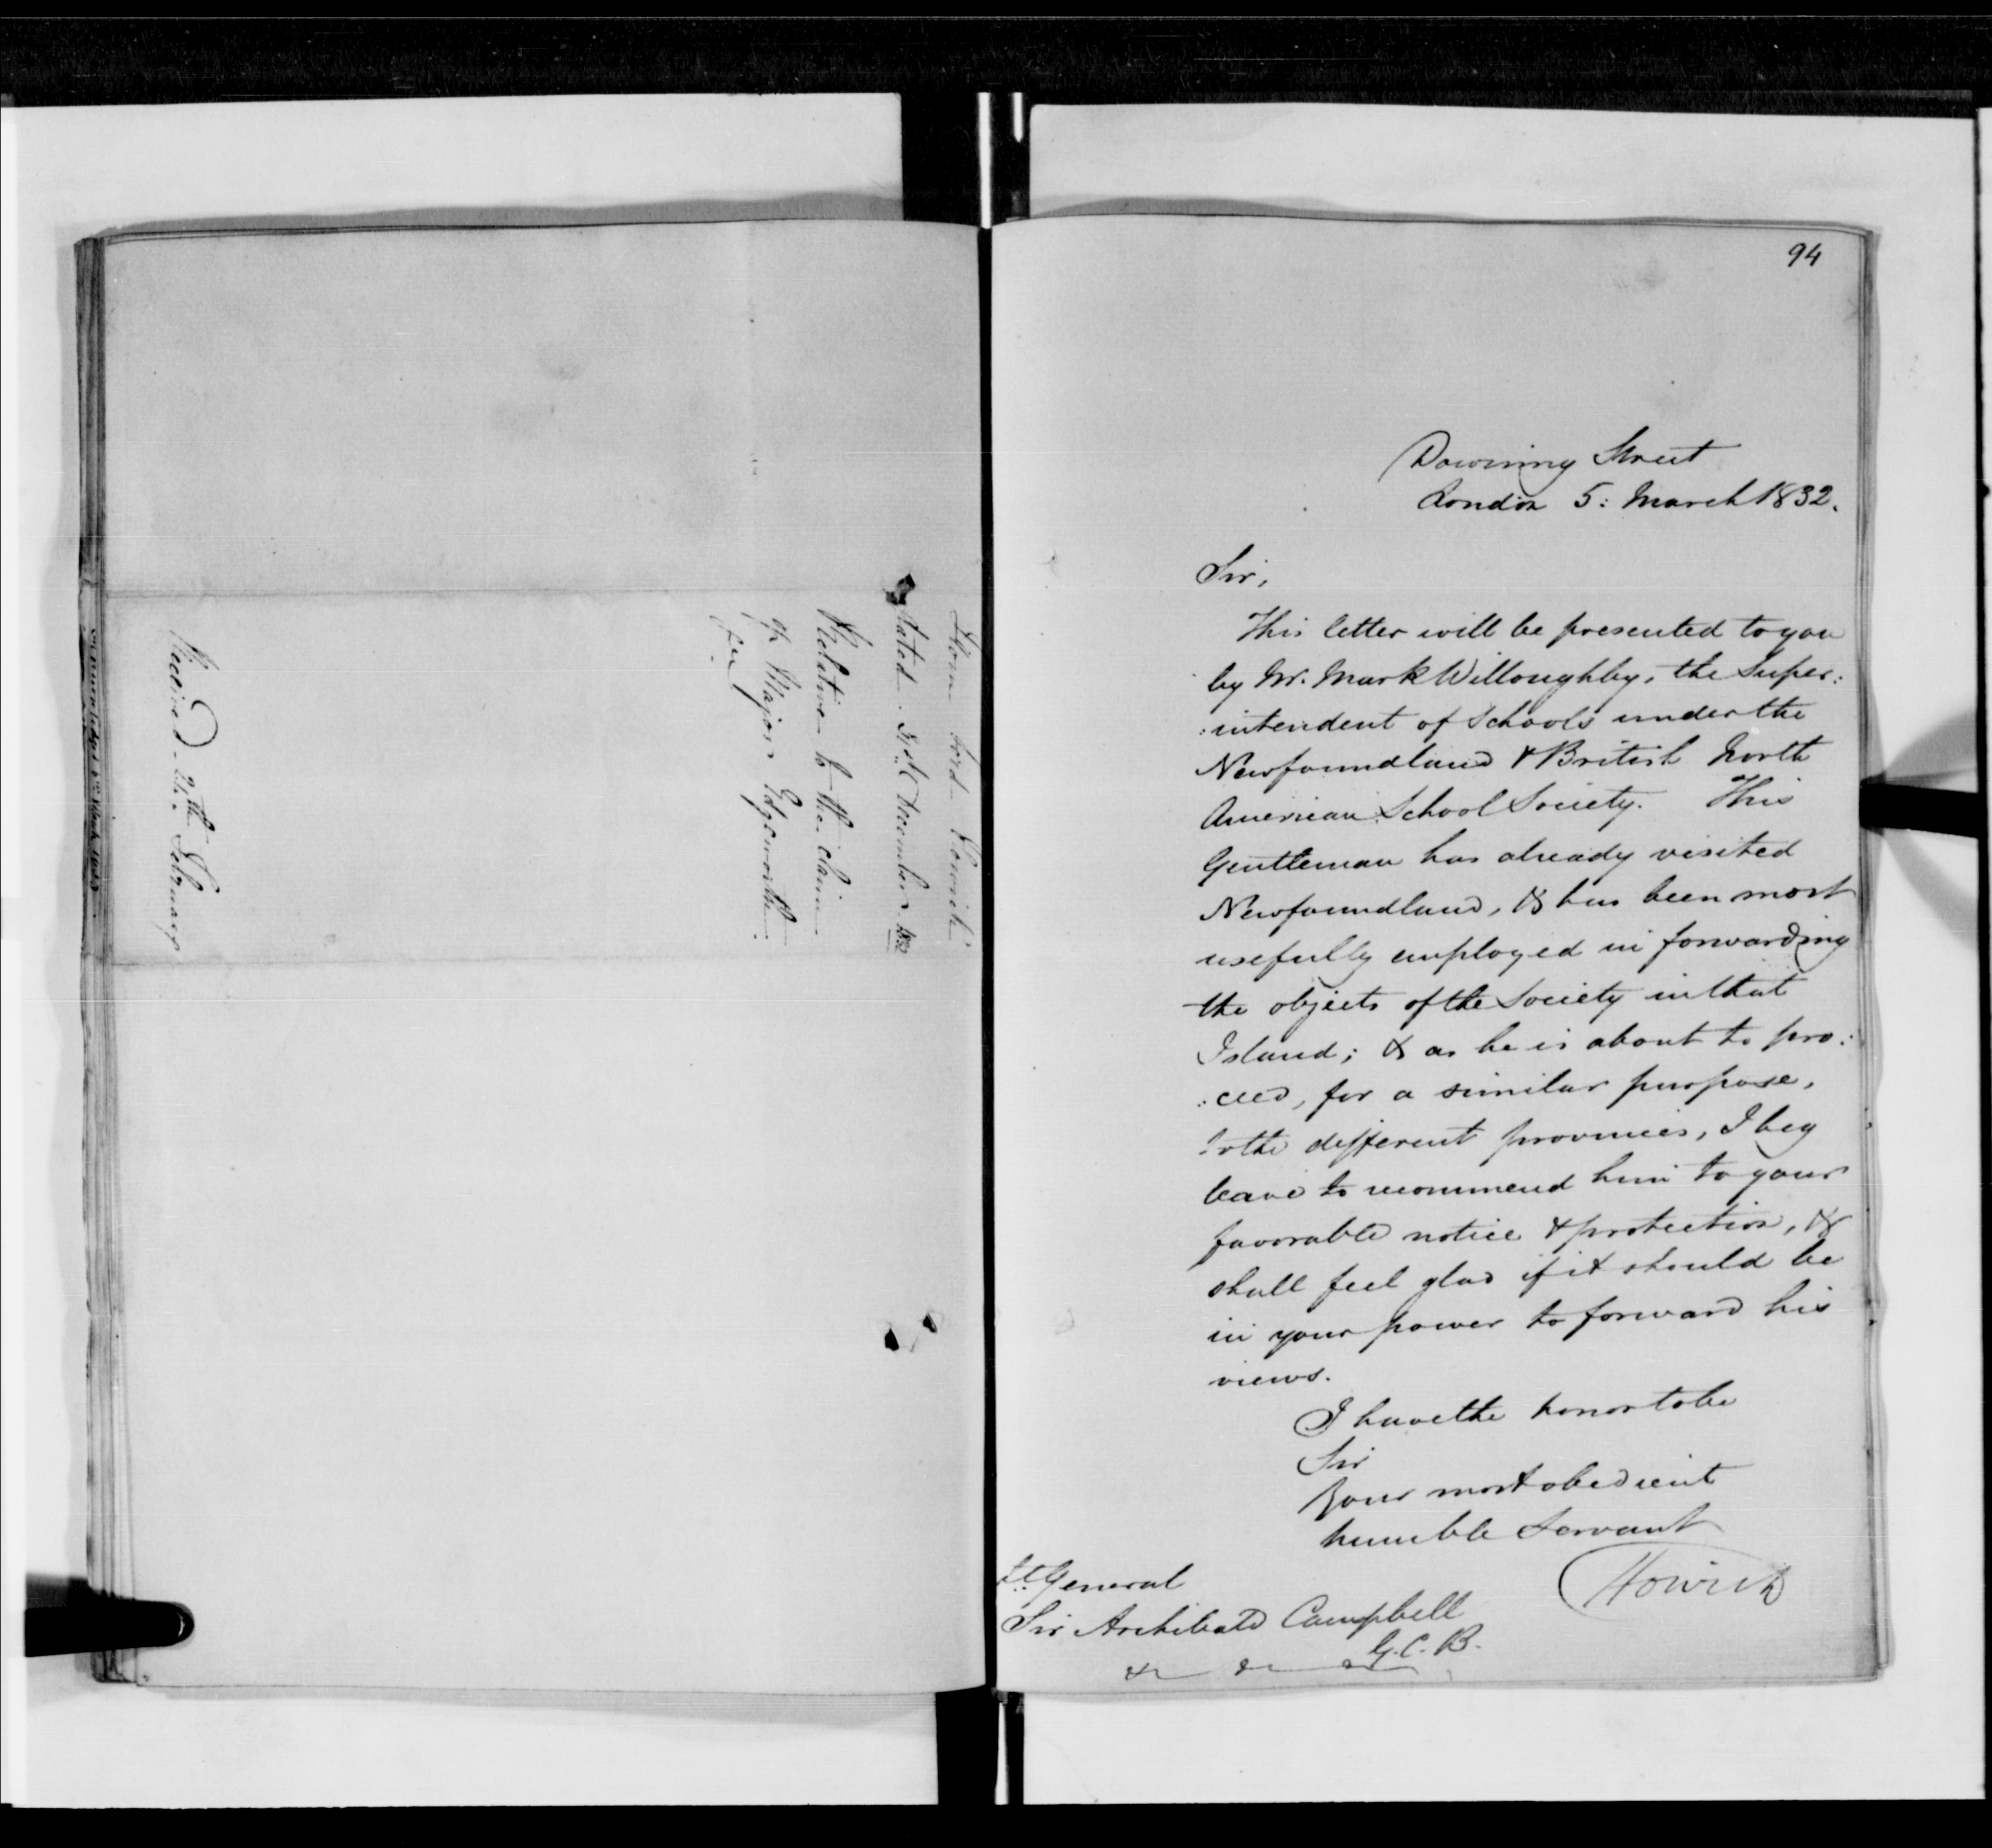 From Lord Howick
Dated
Relative to the claim
of Major Edgeworth.
Received 24th February
94
Downing Street
London 5: March 1832.
Sir,
This letter will be presented to you
by Mr. Mark Willoughby, the Super:
:intendent of Schools under the
Newfoundland & British North
American School Society. This
Gentleman has already visited
Newfoundland, & has been most
usefully employed in forwarding
the objects of the Society in that
Island; & as he is about to pro:
:ceed, for a similar purpose,
to the different provinces, I beg
leave to recommend him to your
favorable notice & protection, &
shall feel glad if it should be
in your power to forward his
views.
I have the honor to be
Sir
Your most obedient
humble Servant
Howick
Lt. General
Sir Archibald Campbell
G.C.B.
&c &c &c